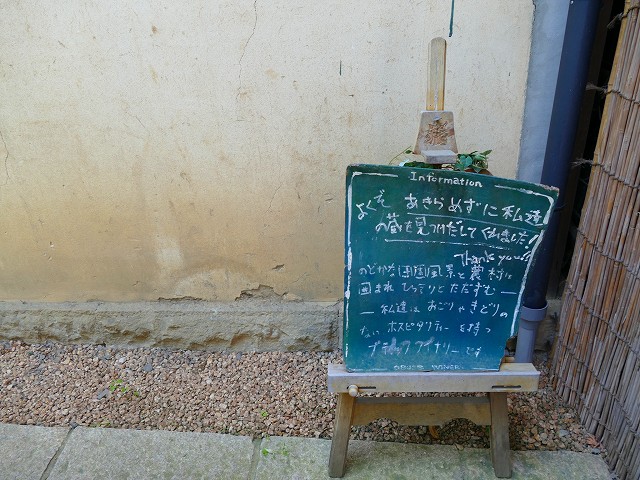 Information
よくぞ あきらめずに私達
の蔵を見つけだして くれました!
Thank you!!
のどかな田園風景と農村に
囲まれ ひっそりとたたずむ
私達は おごりやきどりの
ない ホスピタリティーを持つ
ブティックワイナリーです